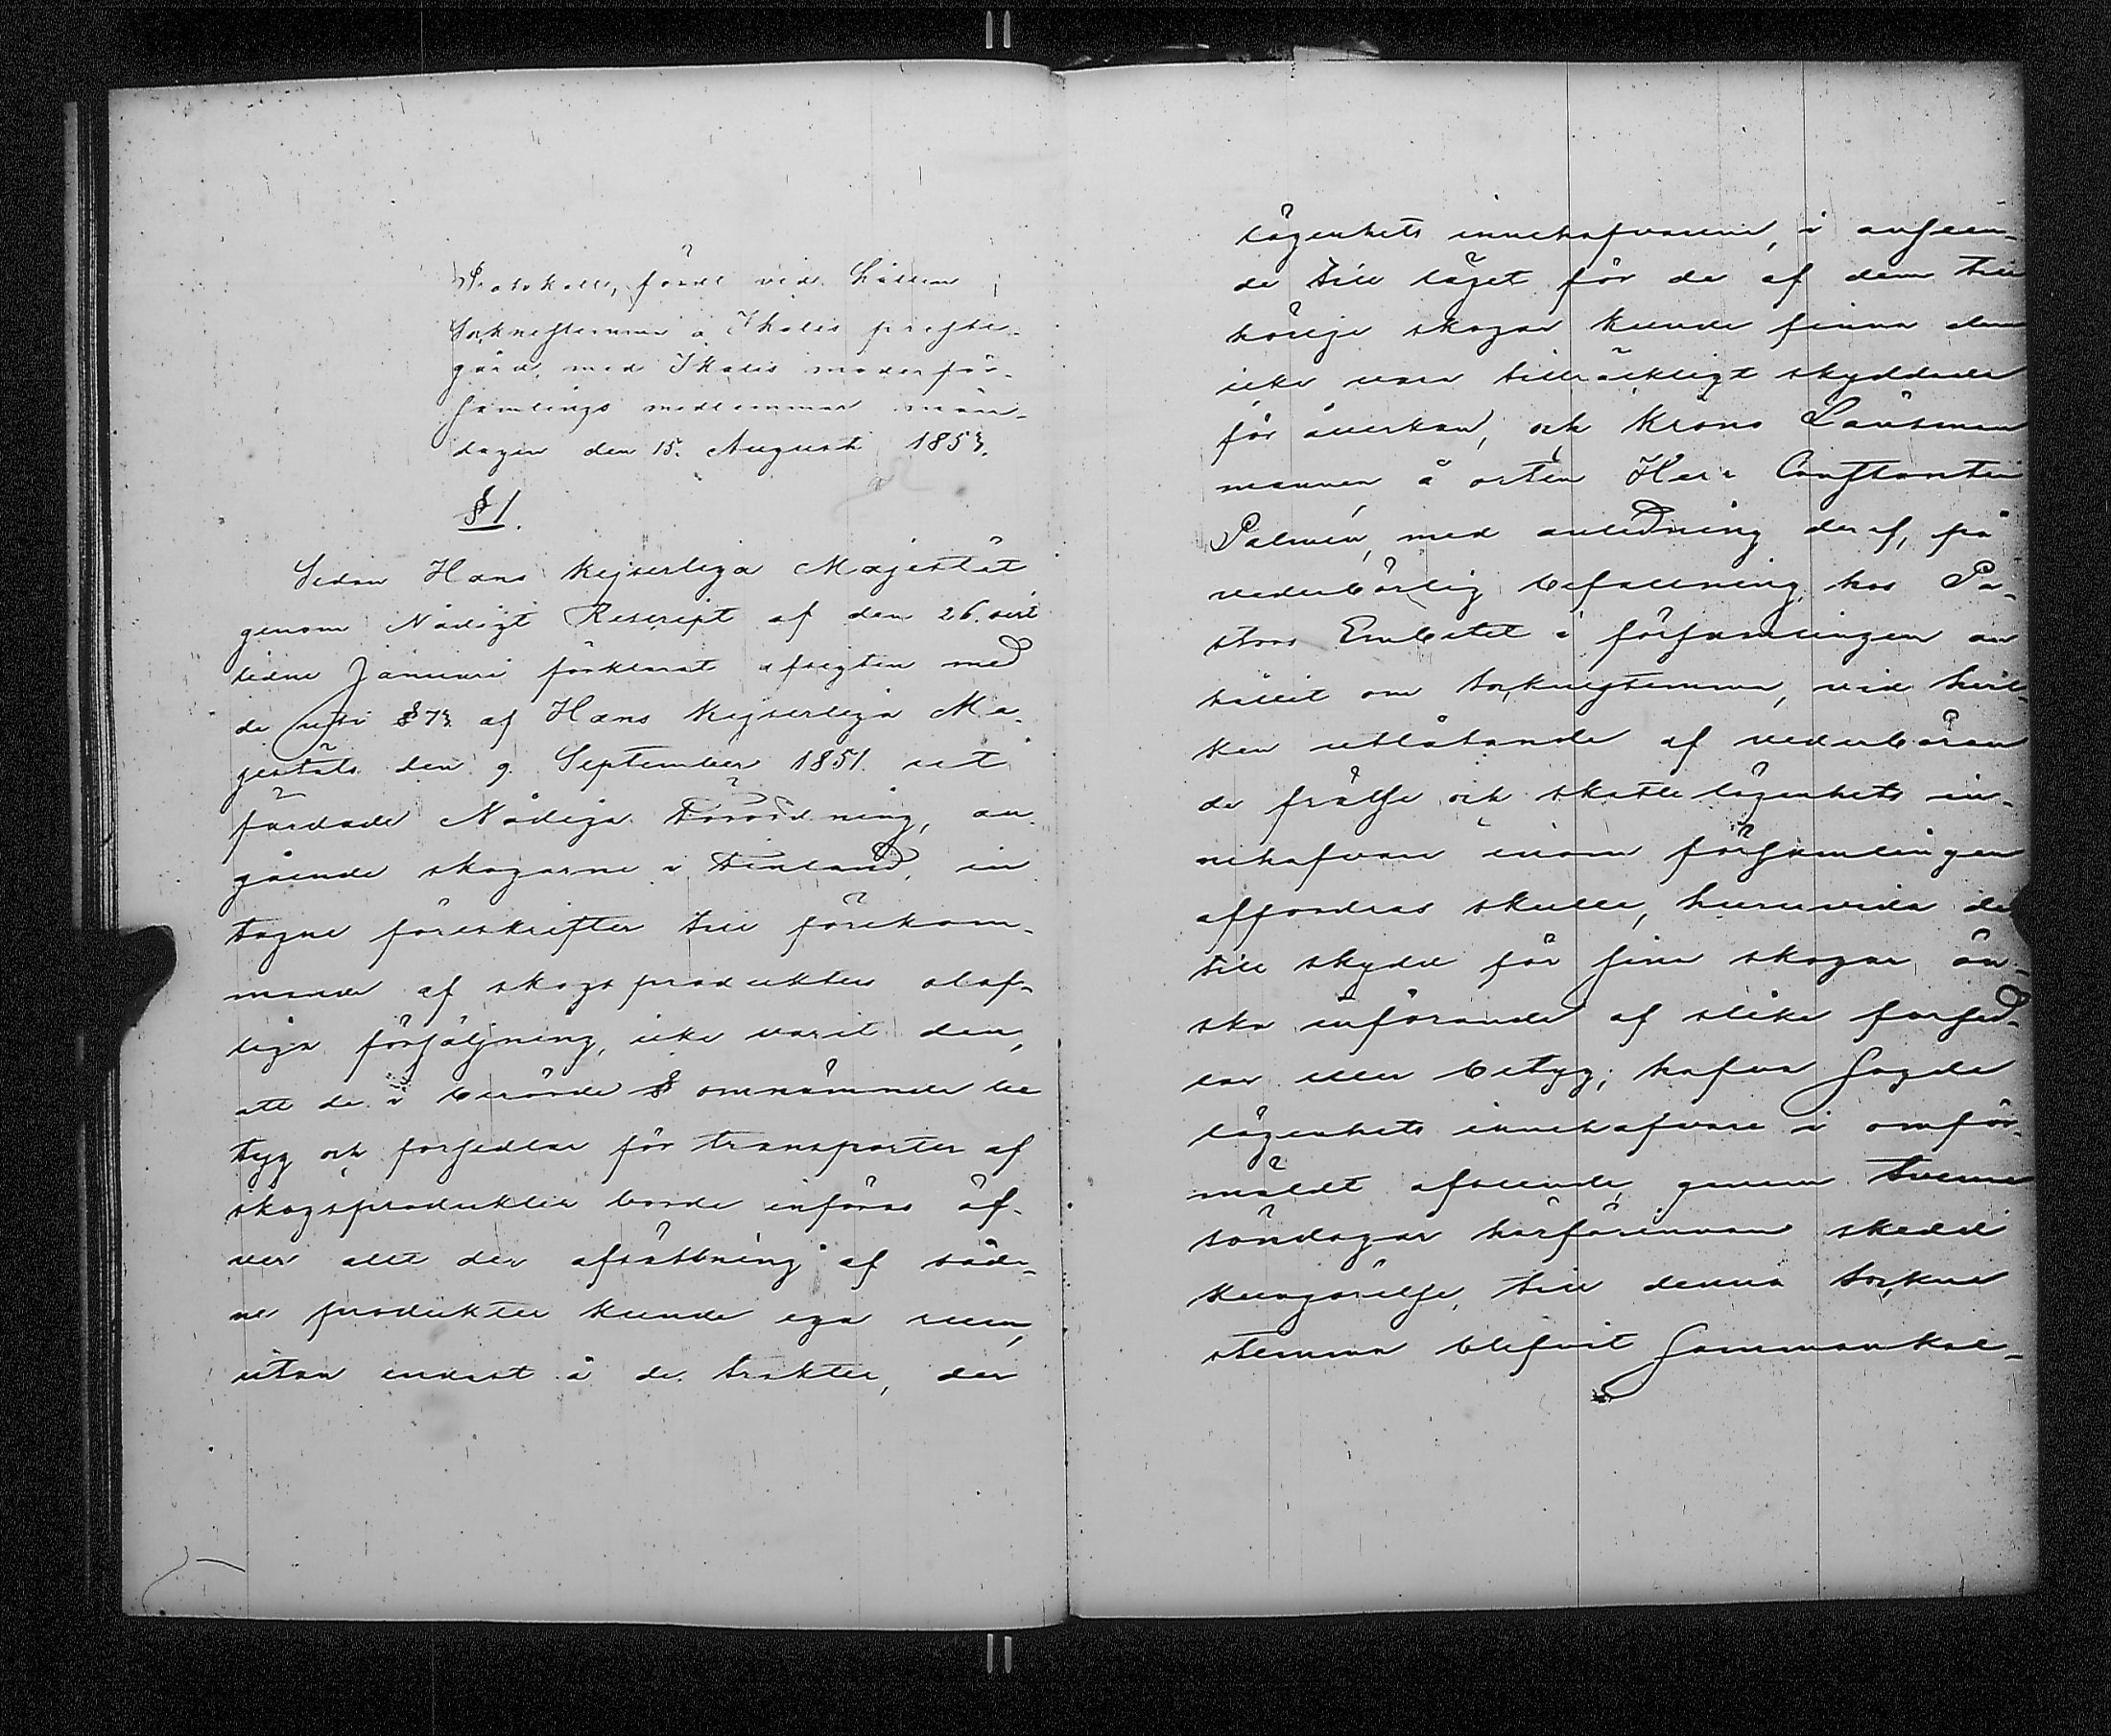 Protokoll, fördt vid hållen
Sockenstemma å Ikalis preste-
gård, med Ikalis moderför-
samlings medlemmar mån-
dagen den 15. Augusti 1853.
§ 1.
Sedan Hans Kejserliga Majestät
genom Nådigt Rescript af den 26. sist
lidne Januari förklarat afsigten med
de uti § 73 af Hans Kejserliga Ma-
jestäts den 9. September 1851 ut
färdade Nådiga Förordning, an-
gående skogarne i Finland, in
tagne föreskrifter till förekom-
mande af skogsprodukters olaf-
liga försäljning, icke varit den,
att de i berörde § omnämnde be
tyg och forsedlar för transporter af
skogsprodukter borde införas öf-
ver allt der afsättning af såda-
ne produkter kunde ega rum,
utan endast å de trakter, der
lägenhets innehafvarene, i anseen-
de till läget för de af dem till
hörige skogar kunde finna dem
icke vara tillräckligt skyddade
för åverkan, och Krono Länsman
mannen å orten Herr Constantin
Palmén, med anledning deraf, på
vederbörlig befallning, hos Pa-
stors Embetet i församlingen an
hållit om Sockenstemma, vid hvil-
ken utlåtande af vederböran
de frälse och skatte lägenhets in-
nehafvare inom församlingen
affordras skulle, huruvida de
till skydd för sina skogar ön-
ska införande af slike forsed-
lar eller betyg; hafva sagde
lägenhets innehafvare i omför-
mäldt afseende, genom tvenne
söndagar härförinnan skedd
kungörelse, till denna Sockne
stemma blifvit sammankal-